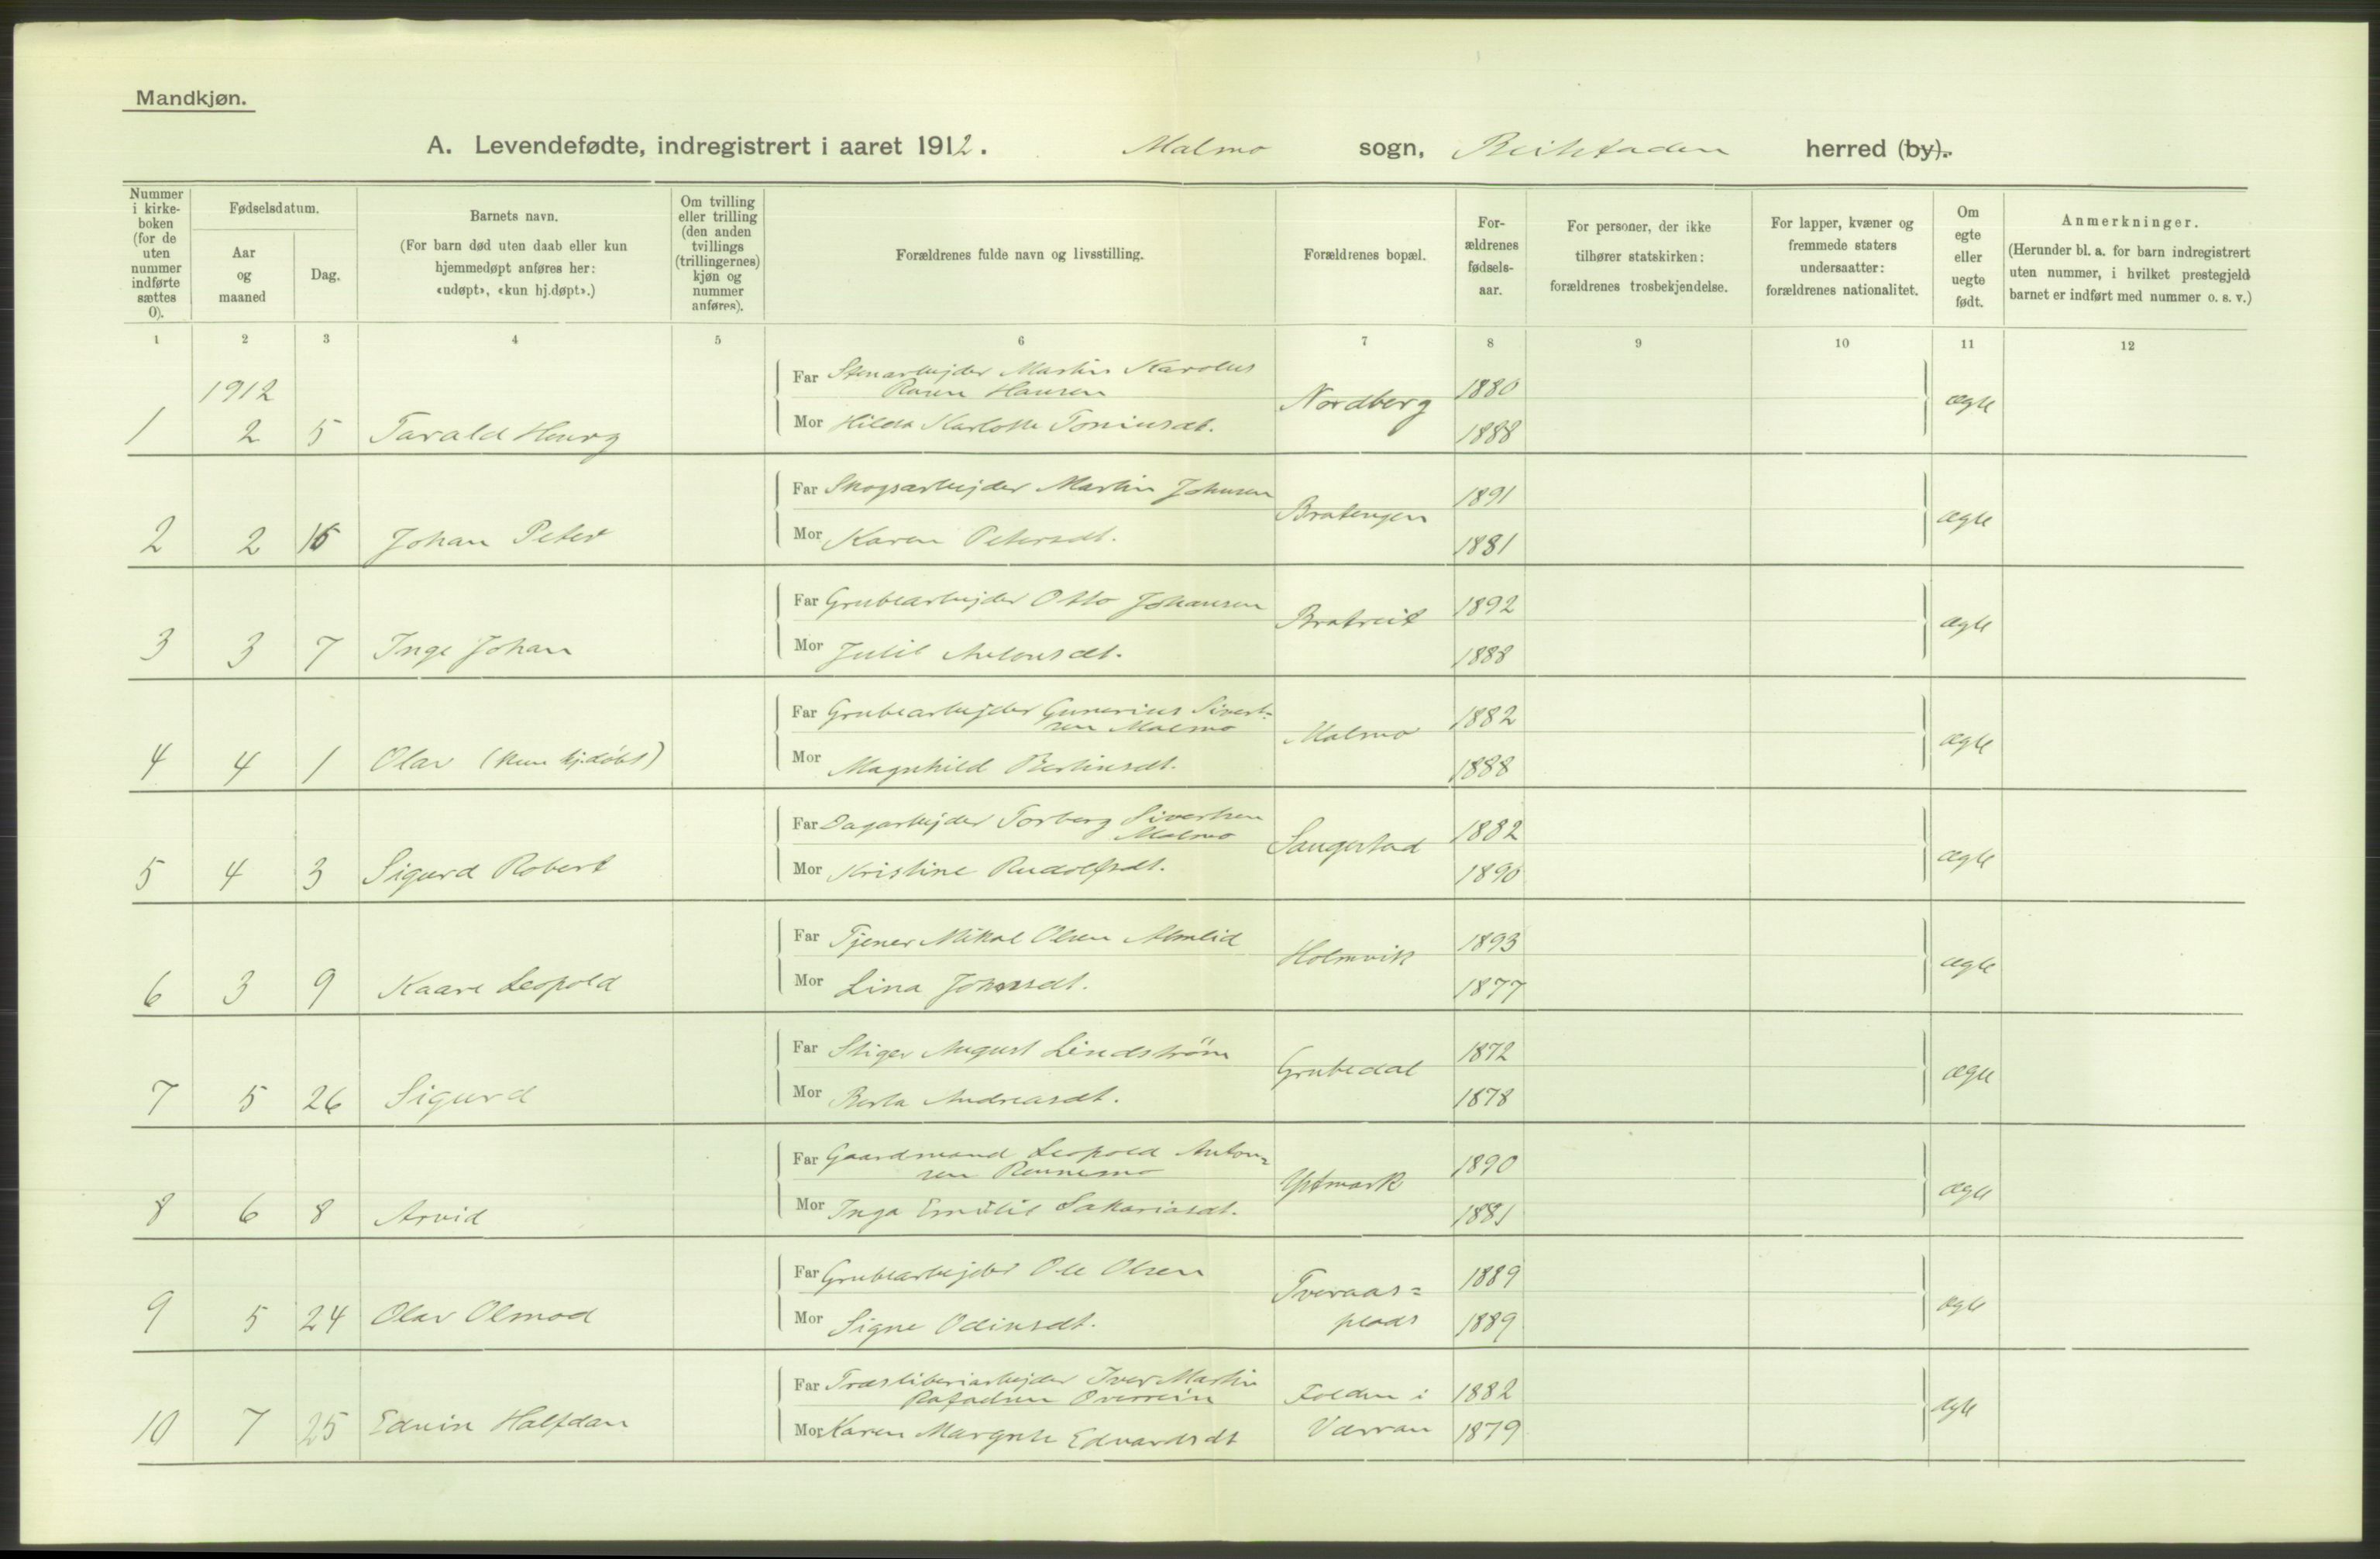 Mandkjøn.
A. Levendefødte, indregistrert i aaret 1912. Malmo sogn, Beitstaden herred (by).
Nummer i kirke-boken (for de uten nummer indførte sættes 0).
Fødselsdatum.
Aar og maaned
Dag.
Barnets navn.
(For barn død uten daab eller kun hjemmedøpt anføres her: «udøpt», «kun hj.døpt».)
Om tvilling eller trilling (den anden tvillings (trillingernes) kjøn og nummer anføres).
Forældrenes fulde navn og livsstilling.
Forældrenes bopæl.
For-ældrenes fødsels-aar.
For personer, der ikke tilhører statskirken: forældrenes trosbekjendelse.
For lapper, kvæner og fremmede staters undersaatter: forældrenes nationalitet.
Om egte eller uegte født.
Anmerkninger.
(Herunder bl. a. for barn indregistrert uten nummer, i hvilket prestegjeld barnet er indført med nummer o. s. v.)
1 2 3 4 5 6 7 8 9 10 11 12
1912
Far Stenarbejder Martin Karolus
Hansen
1 2 5 Tarald Henry
Mor Hilda Karlotte Toninsdt.
Nordberg 1880 1888 ægte
Far Skogsarbejder Martin Johnsen
2 2 15 Johan Peter
Mor Karen Petersdt.
Bratengen 1891 1881 ægte
Far Grubearbejder Otto Johansen
3 3 7 Inge Johan
Mor Julie Antonsdt.
Bratreit 1892 1888 ægte
Far Grubearbejder Gunerius Sivert-
sen Malmo
4 4 1 Olav (kun hj.døbt)
Mor Magnhild Bertinsdt.
Malmo 1882 1888 ægte
Far Dagarbejder Torberg Sivertsen
Malmo
5 4 3 Sigurd Robert
Mor Kristine Rudolfsdt.
Saugestad 1882 1890 ægte
Far Tjener Mikal Olsen Almlid
6 3 9 Kaare Leopold
Mor Lina Johnsdt.
Holmvik 1893 1877 ægte
Far Stiger August Lindstrøm
7 5 26 Sigurd
Mor Berta Andreasdt.
Grubedal 1872 1878 ægte
Far Gaardmand Leopold Anton-
sen Rennemo
8 6 8 Arvid
Mor Inga Emilie Sakariasdt.
Ystmark 1890 1881 ægte
Far Grubearbejder Ole Olsen
9 5 24 Olav Olmod
Mor Signe Odinsdt.
Tveraas=
plads 1889 1889 ægte
Far Træsliberiarbejder Iver Martin
Overrein
10 7 25 Edvin Halfdan
Mor Karen Margrete Edvardsdt
Folden i
Værran 1882 1879 ægte